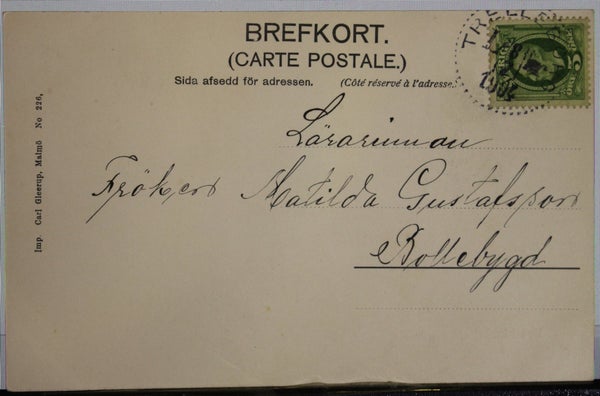 BREFKORT.
(CARTE POSTALE.)
Sida afsedd för adressen. (Côté réservé à l'adresse.)
TRELLE
1904
Lärarinnan
Fröken Matilda Gustafsson
Bollebygd
Imp. Carl Gleerup, Malmö No 226,